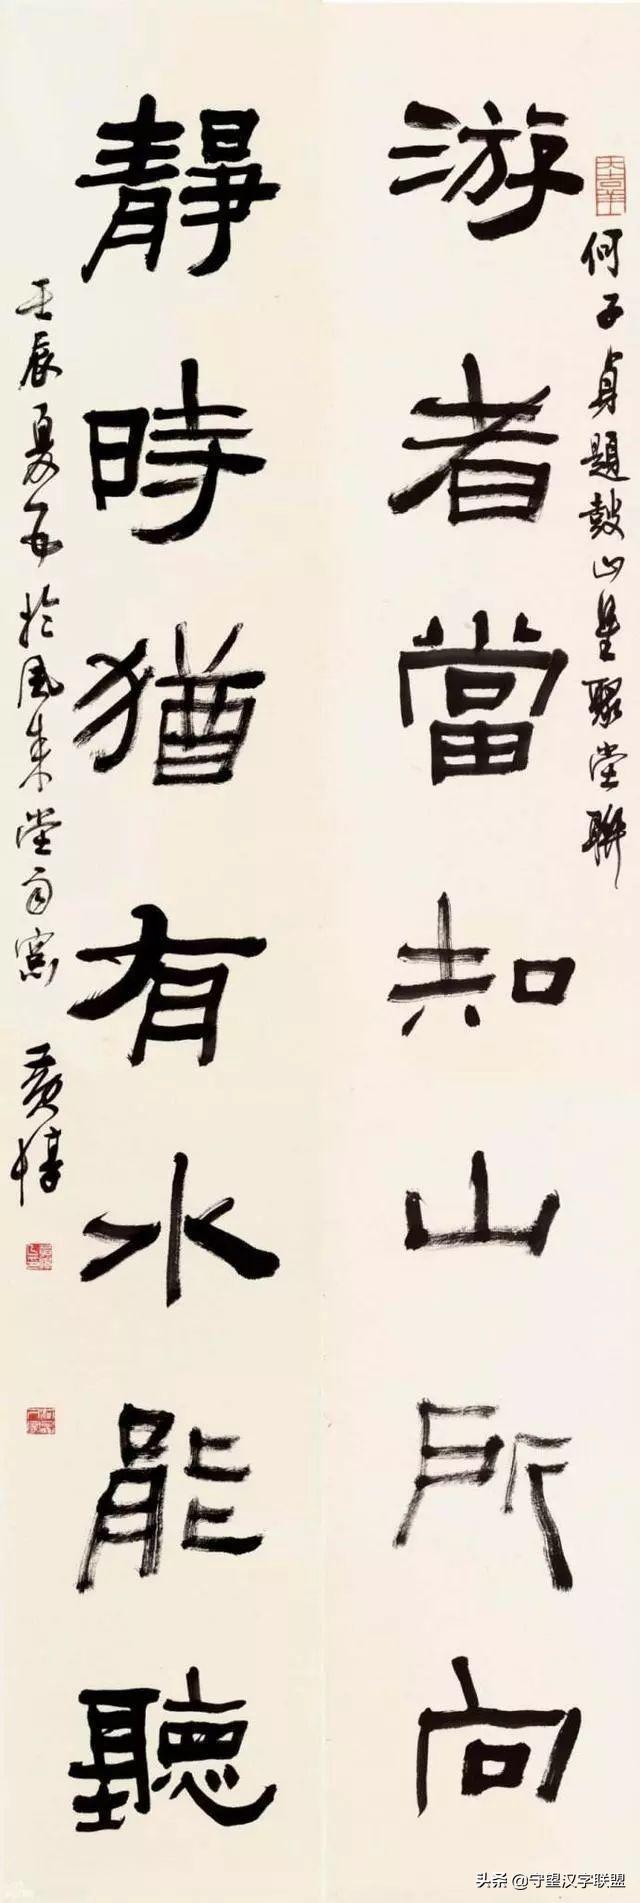 何子貞題鼓山星聚堂聯
游者當知山所向
靜時猶有水能聽
壬辰夏孟於風來堂南窗 黃惇
头条@守望汉字联盟